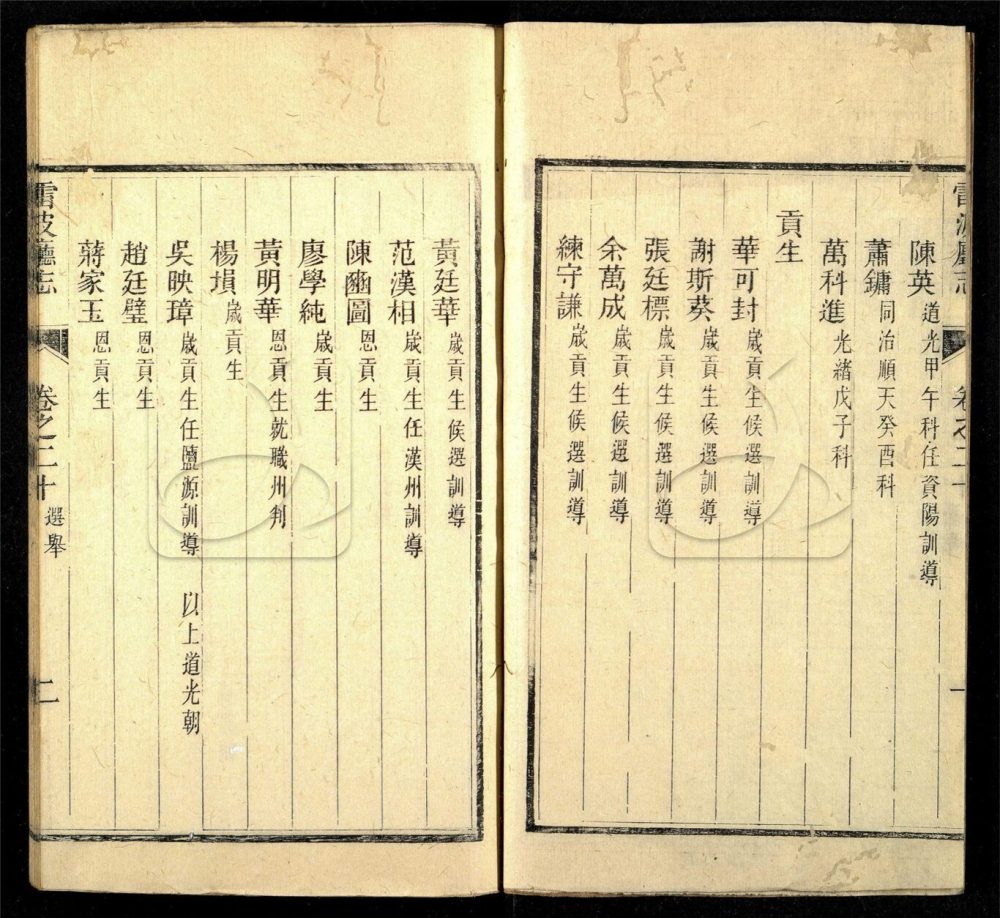 雷波廳志
卷之二十
一
陳英 道光甲午科任資陽訓導
蕭鏞 同治順天癸酉科
萬科進 光緒戊子科
貢生
華可封 歲貢生候選訓導
謝斯葵 歲貢生候選訓導
張廷標 歲貢生候選訓導
余萬成 歲貢生候選訓導
練守謙 歲貢生候選訓導
黃廷華 歲貢生候選訓導
范漢相 歲貢生任漢州訓導
陳圖 恩貢生
廖學純 歲貢生
黃明華 恩貢生就職州判
楊塤 歲貢生
吳映璋 歲貢生任鹽源訓導 以上道光朝
趙廷璧 恩貢生
蔣家玉 恩貢生
雷波廳志
卷之二十 選舉
二